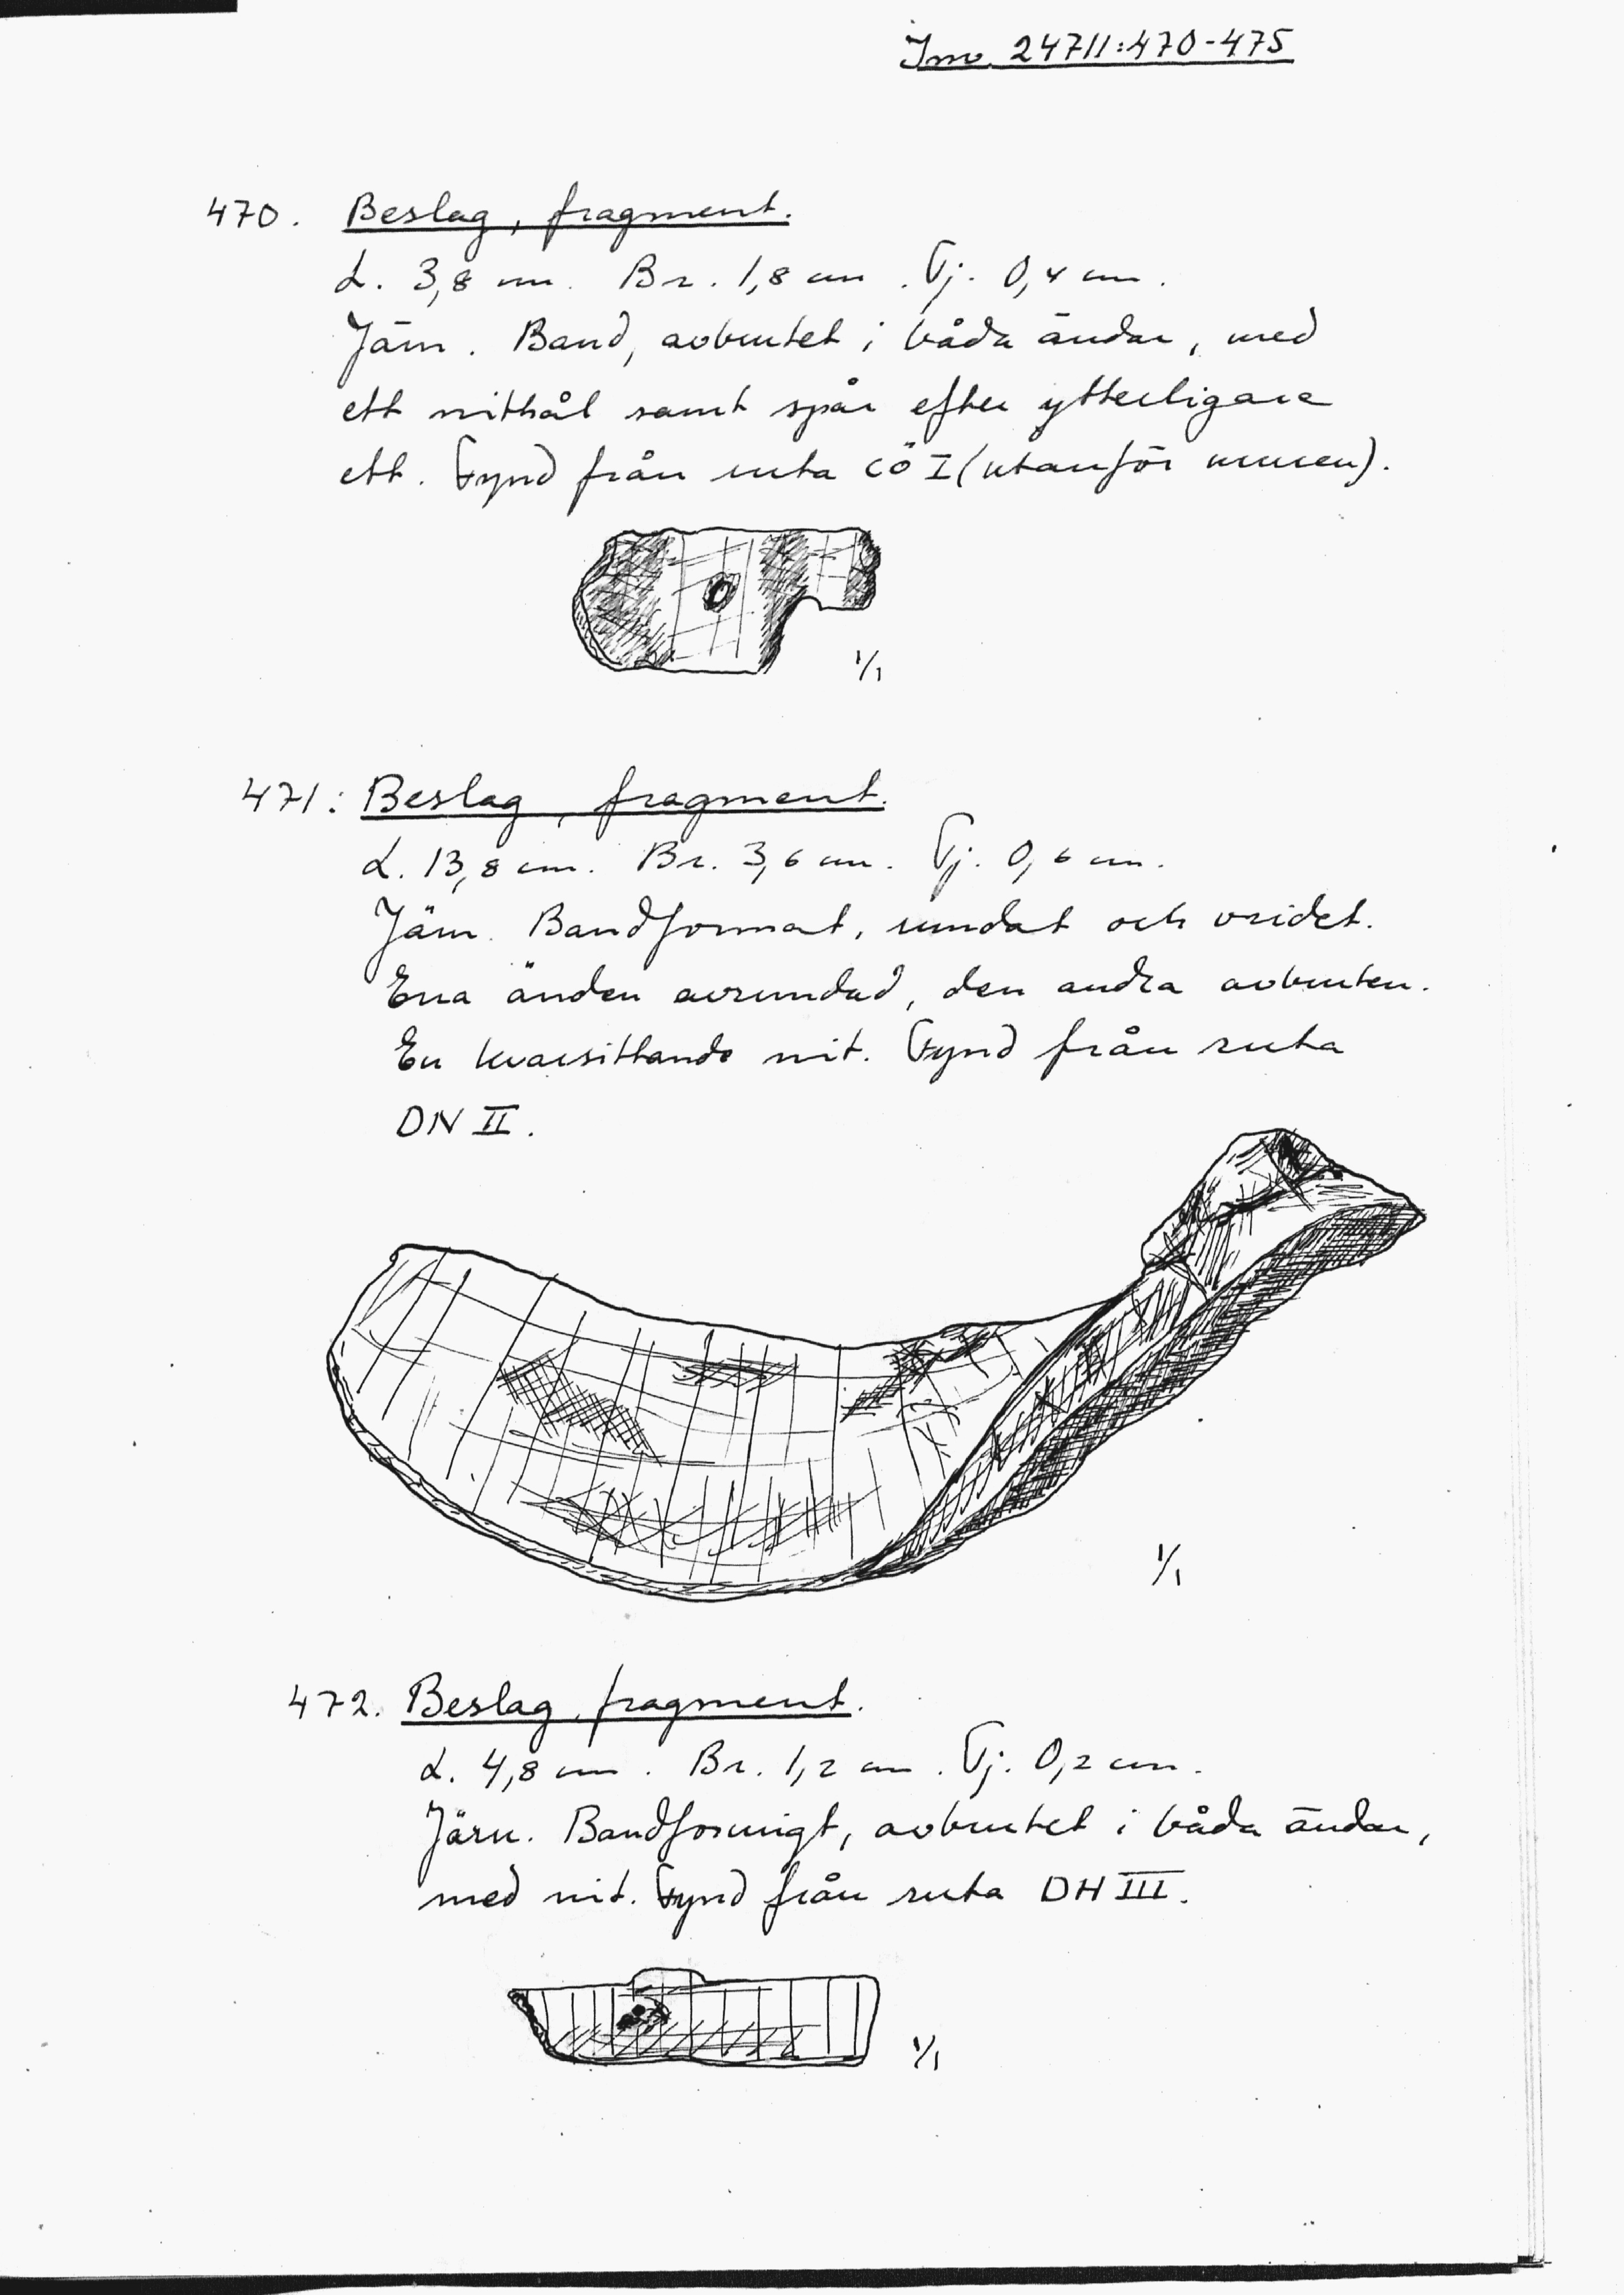 Inv. 24711:470-475
470. Beslag, fragment.
L. 3,8 cm. Br. 1,8 cm. Tj. 0,4 cm.
Järn. Band, avbrutet i båda ändar, med
ett nithål samt spår efter ytterligare
ett. Fynd från ruta CÖ I (utanför muren).
1/1
471: Beslag, fragment.
L. 13,8 cm. Br. 3,6 cm. Tj. 0,6 cm.
Järn. Bandformat, rundat och vridet.
Ena änden avrundad, den andra avbruten.
En kvarsittande nit. Fynd från ruta
DN II.
1/1
472. Beslag, fragment.
L. 4,8 cm. Br. 1,2 cm. Tj. 0,2 cm.
Järn. Bandformigt, avbrutet i båda ändar,
med nit. Fynd från ruta DH III.
1/1